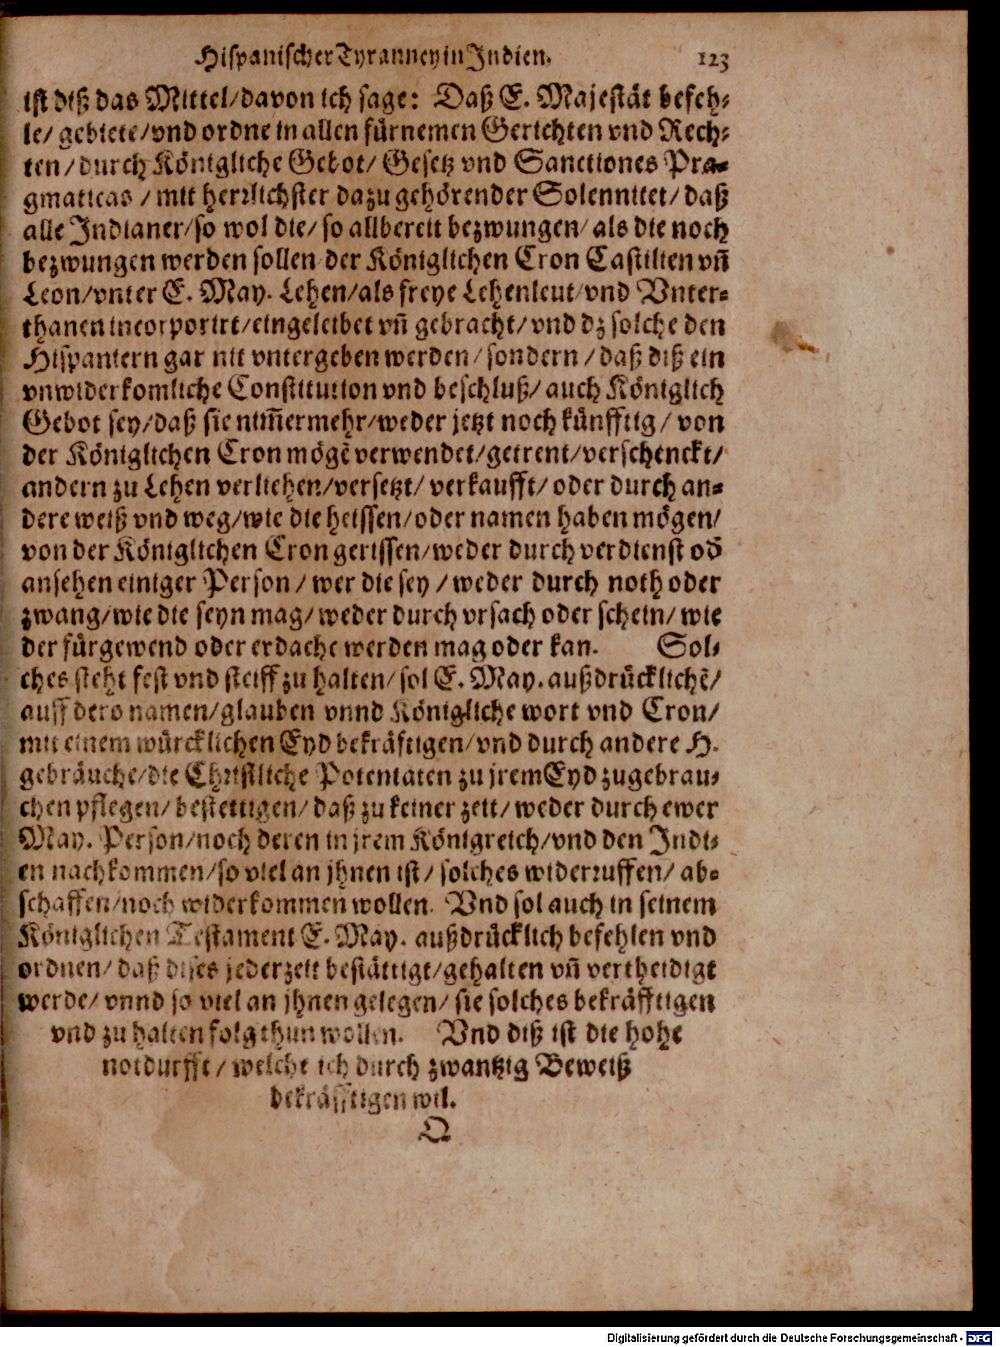 Hispanischer Tyranney in Indien. 123
ist diß das Mittel/davon ich sage: Daß E. Majestät befeh-
le/ gebiete/vnd ordne in allen fürnemen Gerichten vnd Rech-
ten/durch Königliche Gebot/ Gesetz vnd Sanctiones Pra-
gmaticas / mit herrlichster dazu gehörender Solennitet/ daß
alle Indianer/so wol die/ so allbereit bezwungen/ als die noch
bezwungen werden sollen der Königlichen Cron Castilien vñ
Leon/vnter E. May. Lehen/als freye Lehenleut/vnd Vnter-
thanen incorporirt/eingeleibet vñ gebracht/vnd dz solche den
Hispaniern gar nit vntergeben werden/ sondern / daß diß ein
vnwiderkomliche Constitution vnd beschluß/ auch Königlich
Gebot sey/daß sie nim̃ermehr/weder jetzt noch künfftig/ von
der Königlichen Cron mögẽ verwendet/getrent/verschenckt/
andern zu Lehen verliehen/versetzt/ verkaufft/ oder durch an-
dere weiß vnd weg/wie die heissen/oder namen haben mögen/
von der Königlichen Cron gerissen/weder durch verdienst od̃
ansehen einiger Person / wer die sey / weder durch noth oder
zwang/wie die seyn mag/ weder durch vrsach oder schein/ wie
der fürgewend oder erdacht werden mag oder kan. Sol-
ches steht fest vnd steiff zu halten/ sol E. May. außdrücklichẽ/
auff dero namen/glauben vnnd Königliche wort vnd Cron/
mit einem würcklichen Eyd bekräftigen/vnd durch andere H.
gebräuche/die Christliche Potentaten zu jrem Eyd zugebrau-
chen pflegen/ bestettigen/ daß zu keiner zeit/ weder durch ewer
May. Person/noch deren in jrem Königreich/vnd den Indi-
en nachkommen/so viel an jhnen ist/ solches widerruffen/ ab-
schaffen/noch widerkommen wollen. Vnd sol auch in seinem
Königlichen Testament E. May. außdrücklich befehlen vnd
ordnen/ daß dises jederzeit bestättigt/gehalten vñ vertheidigt
werde/ vnnd so viel an jhnen gelegen/ sie solches bekräfftigen
vnd zu halten folg thun wollen. Vnd diß ist die hohe
notdurfft/ welche ich durch zwantzig Beweiß
bekräfftigen wil.
Q
Digitalisierung gefördert durch die Deutsche Forschungsgemeinschaft - DFG